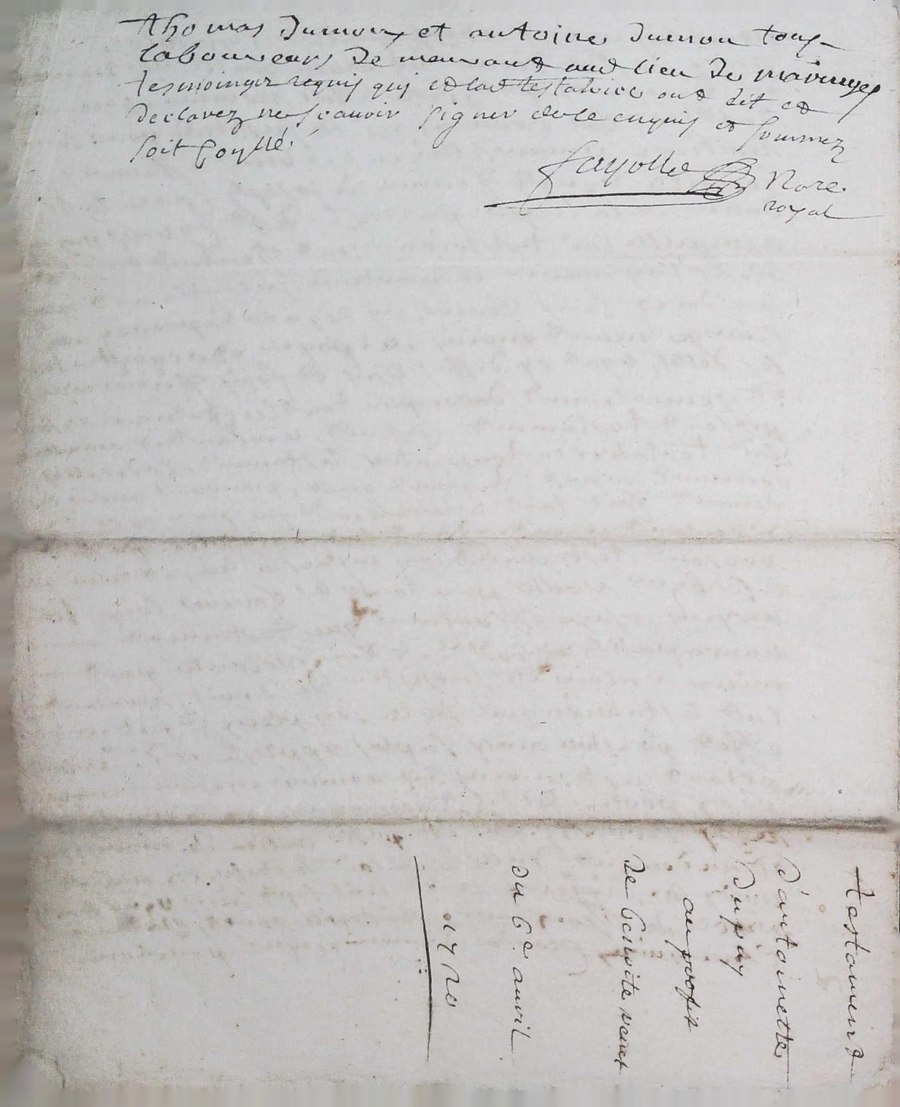 Thomas dumon et antoine dumon tous
laboureurs de meurand aud lieu de maringes
tesmoingz requis qui et lad testatrice ont dit et
declarez ne scauoir signer de ce enquis et sommez
soit
fayolle Nore
royal
testament
d'antoinette
dupuy
au profit
de benoite
du 6e auril
1720